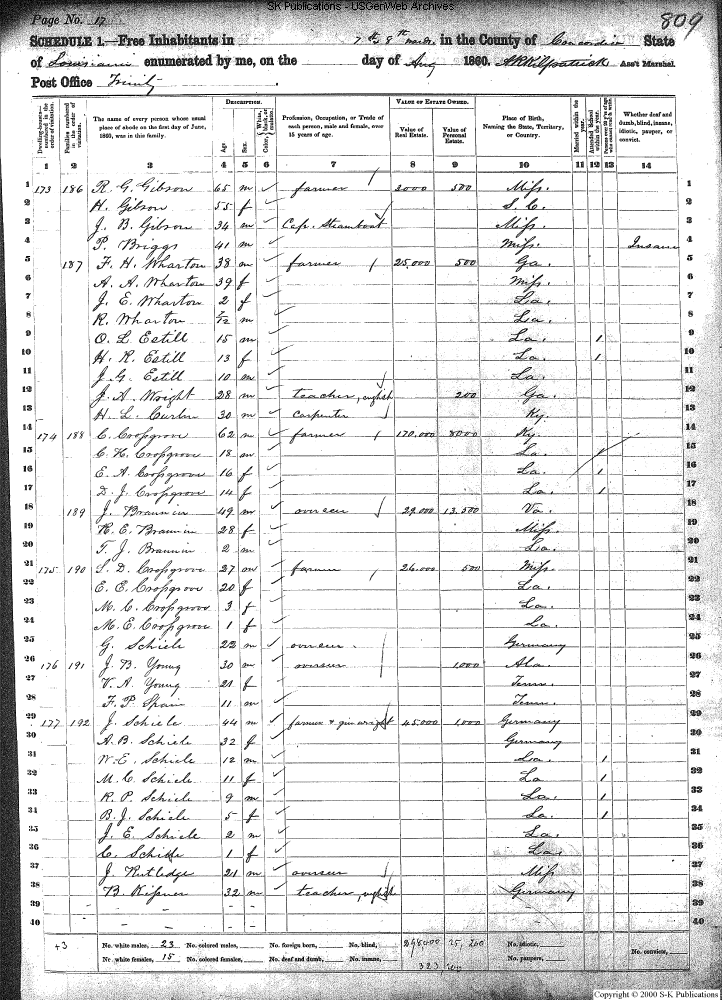 SK Publications - USGenWeb Archives
Page No. 17
809
SCHEDULE 1.—Free Inhabitants in 7th & 8th in the County of Concordia State
of Louisiana enumerated by me, on the day of Aug 1860. A R Kilpatrick Ass't Marshal.
Post Office Trinity
Dwelling-houses—numbered in the order of visitation. Families numbered in the order of visitation. The name of every person whose usual place of abode on the first day of June, 1860, was in this family. DESCRIPTION. Age. Sex. Color, White, black, or mulatto. Profession, Occupation, or Trade of each person, male and female, over 15 years of age. VALUE OF ESTATE OWNED. Value of Real Estate. Value of Personal Estate. Place of Birth, Naming the State, Territory, or Country. Married within the year. Attended School within the year. Whether deaf and dumb, blind, insane, idiotic, pauper, or convict.
1 2 3 4 5 6 7 8 9 10 11 12 13 14
1 173 186 R. G. Gibson 65 m ✓ farmer / 2000 500 Miss. 1
2 H. Gibson 55 f ✓ S. C. 2
3 J. B. Gibson 34 m ✓ Cap. Steamboat Miss. 3
4 P. Briggs 41 m ✓ Miss. Insane 4
5 187 F. H. Wharton 38 m ✓ farmer / 25,000 500 Ga. 5
6 A. A. Wharton 39 f ✓ Miss. 6
7 J. E. Wharton 2 f ✓ La. 7
8 R. Wharton 7/12 m ✓ La. 8
9 O. L. Estill 15 m ✓ La. 1 9
10 H. R. Estill 13 f ✓ La. 1 10
11 J. G. Estill 10 m ✓ La. 11
12 J. A. Wright 28 m ✓ teacher, english 200 Ga. 12
13 H. L. 30 m ✓ carpenter Ky. 13
14 174 188 C. Crossgrove 62 m ✓ farmer / 170,000 8000 Ky. 14
15 C. H. Crossgrove 18 m ✓ La. 15
16 E. A. Crossgrove 16 f ✓ La. 1 16
17 D. J. Crossgrove 14 f ✓ La. 1 17
18 189 J. Brannin 49 m ✓ overseer 29,000 13,500 Va. 18
19 R. E. Brannin 28 f ✓ Miss. 19
20 T. J. Brannin 2 m ✓ La. 20
21 175 190 S. D. Crossgrove 27 m ✓ farmer / 26,000 500 Miss. 21
22 E. E. Crossgrove 20 f ✓ La. 22
23 M. C. Crossgrove 3 f ✓ La. 23
24 M. E. Crossgrove 1 f ✓ La. 24
25 G. Schiele 22 m ✓ overseer Germany 25
26 176 191 J. B. Young 30 m ✓ overseer 1,000 Ala. 26
27 V. A. Young 21 f ✓ Tenn. 27
28 F. P. Spain 11 m ✓ Tenn. 28
29 177 192 J. Schiele 44 m ✓ farmer & gin wright 45,000 1,000 Germany 29
30 A. B. Schiele 32 f ✓ Germany 30
31 W. E. Schiele 12 m ✓ La. 1 31
32 M. C. Schiele 11 f ✓ La 1 32
33 R. P. Schiele 9 m ✓ La. 1 33
34 B. J. Schiele 5 f ✓ La. 1 34
35 J. E. Schiele 2 m ✓ La. 35
36 C. Schiele 1 f ✓ La. 36
37 J. Rutledge 21 m ✓ overseer Miss 37
38 B. 32 m ✓ teacher, english Germany 38
39 39
40 40
43 No. white males, 23 No. colored males, No. foreign born, No. blind, 25,200 No. idiotic, No. convicts,
No. white females, 15 No. colored females, No. deaf and dumb, No. insane, No. paupers,
Copyright © 2000 S-K Publications